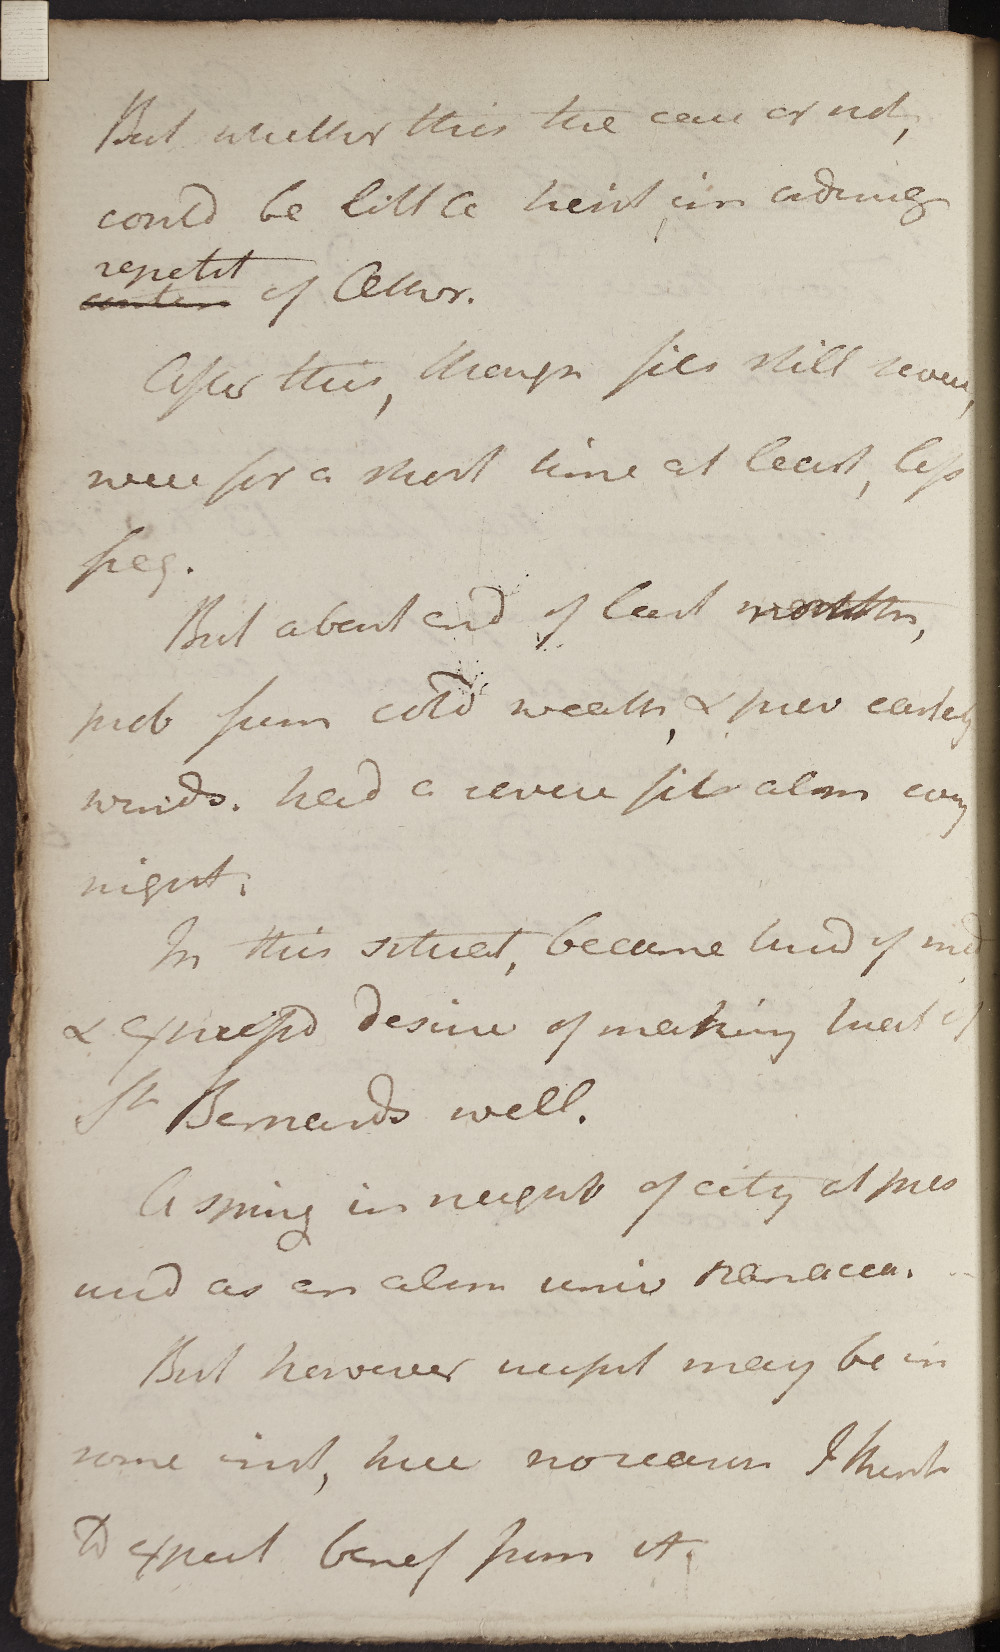 But whether this the case or not,
could be little hesit in advising
repetit
of Æther.
After this, though fits still severe,
were for a short time at least, less
freq.
But about end of last month,
prob from cold weath, & prev easterly
winds. had a severe fit alm every
night.
In this situat, became tired of med
& expressd desire of making trial of
St Bernards well.
A spring in neighb of city at pres
used as an alm univ Panacea.
But however usefut may be in
some inst, here no reason I think
to expect benef from it.